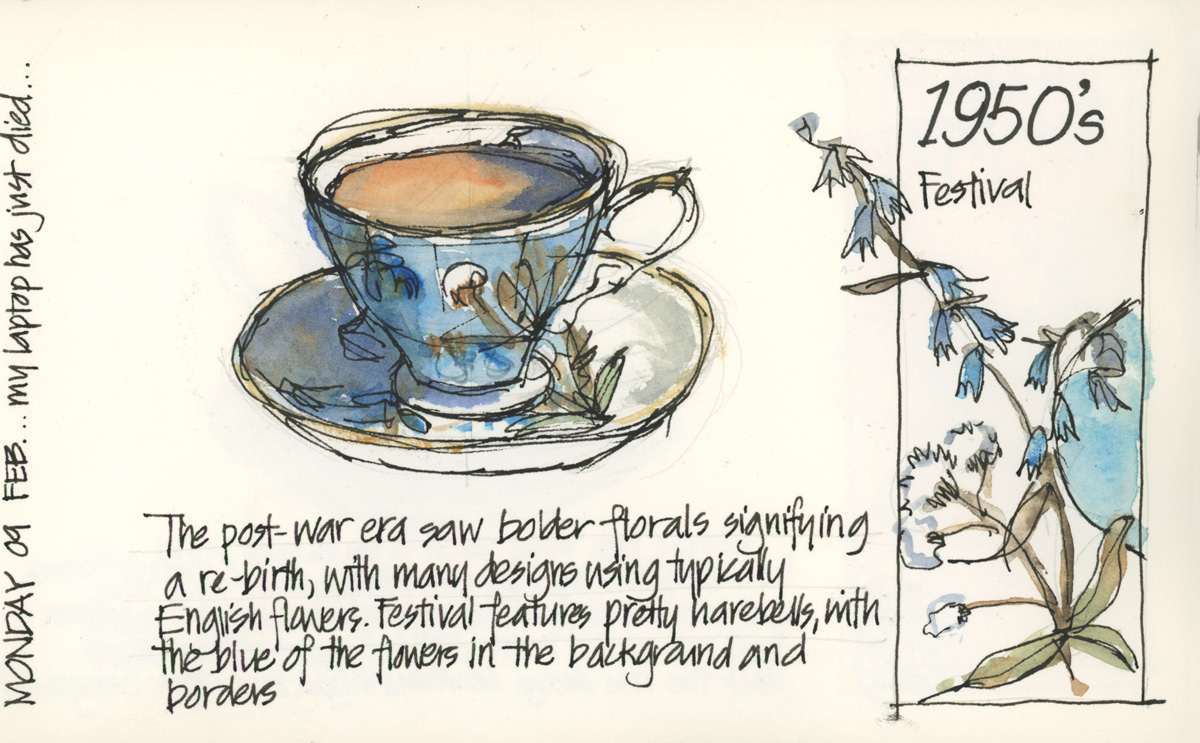 MONDAY 09 FEB... my laptop has just died...
1950's
Festival
The post-war era saw bolder florals signifying
a re-birth, with many designs using typically
English flowers. Festival features pretty harebells, with
the blue of the flowers in the background and
borders